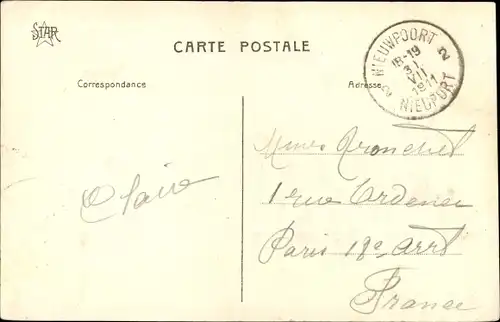 STAR
CARTE POSTALE
Correspondance
Adresse
NIEUWPOORT 2
18-19
31
VII
1911
2 NIEUPORT
Claire
1 rue Ordener
Paris 18e arrt
France